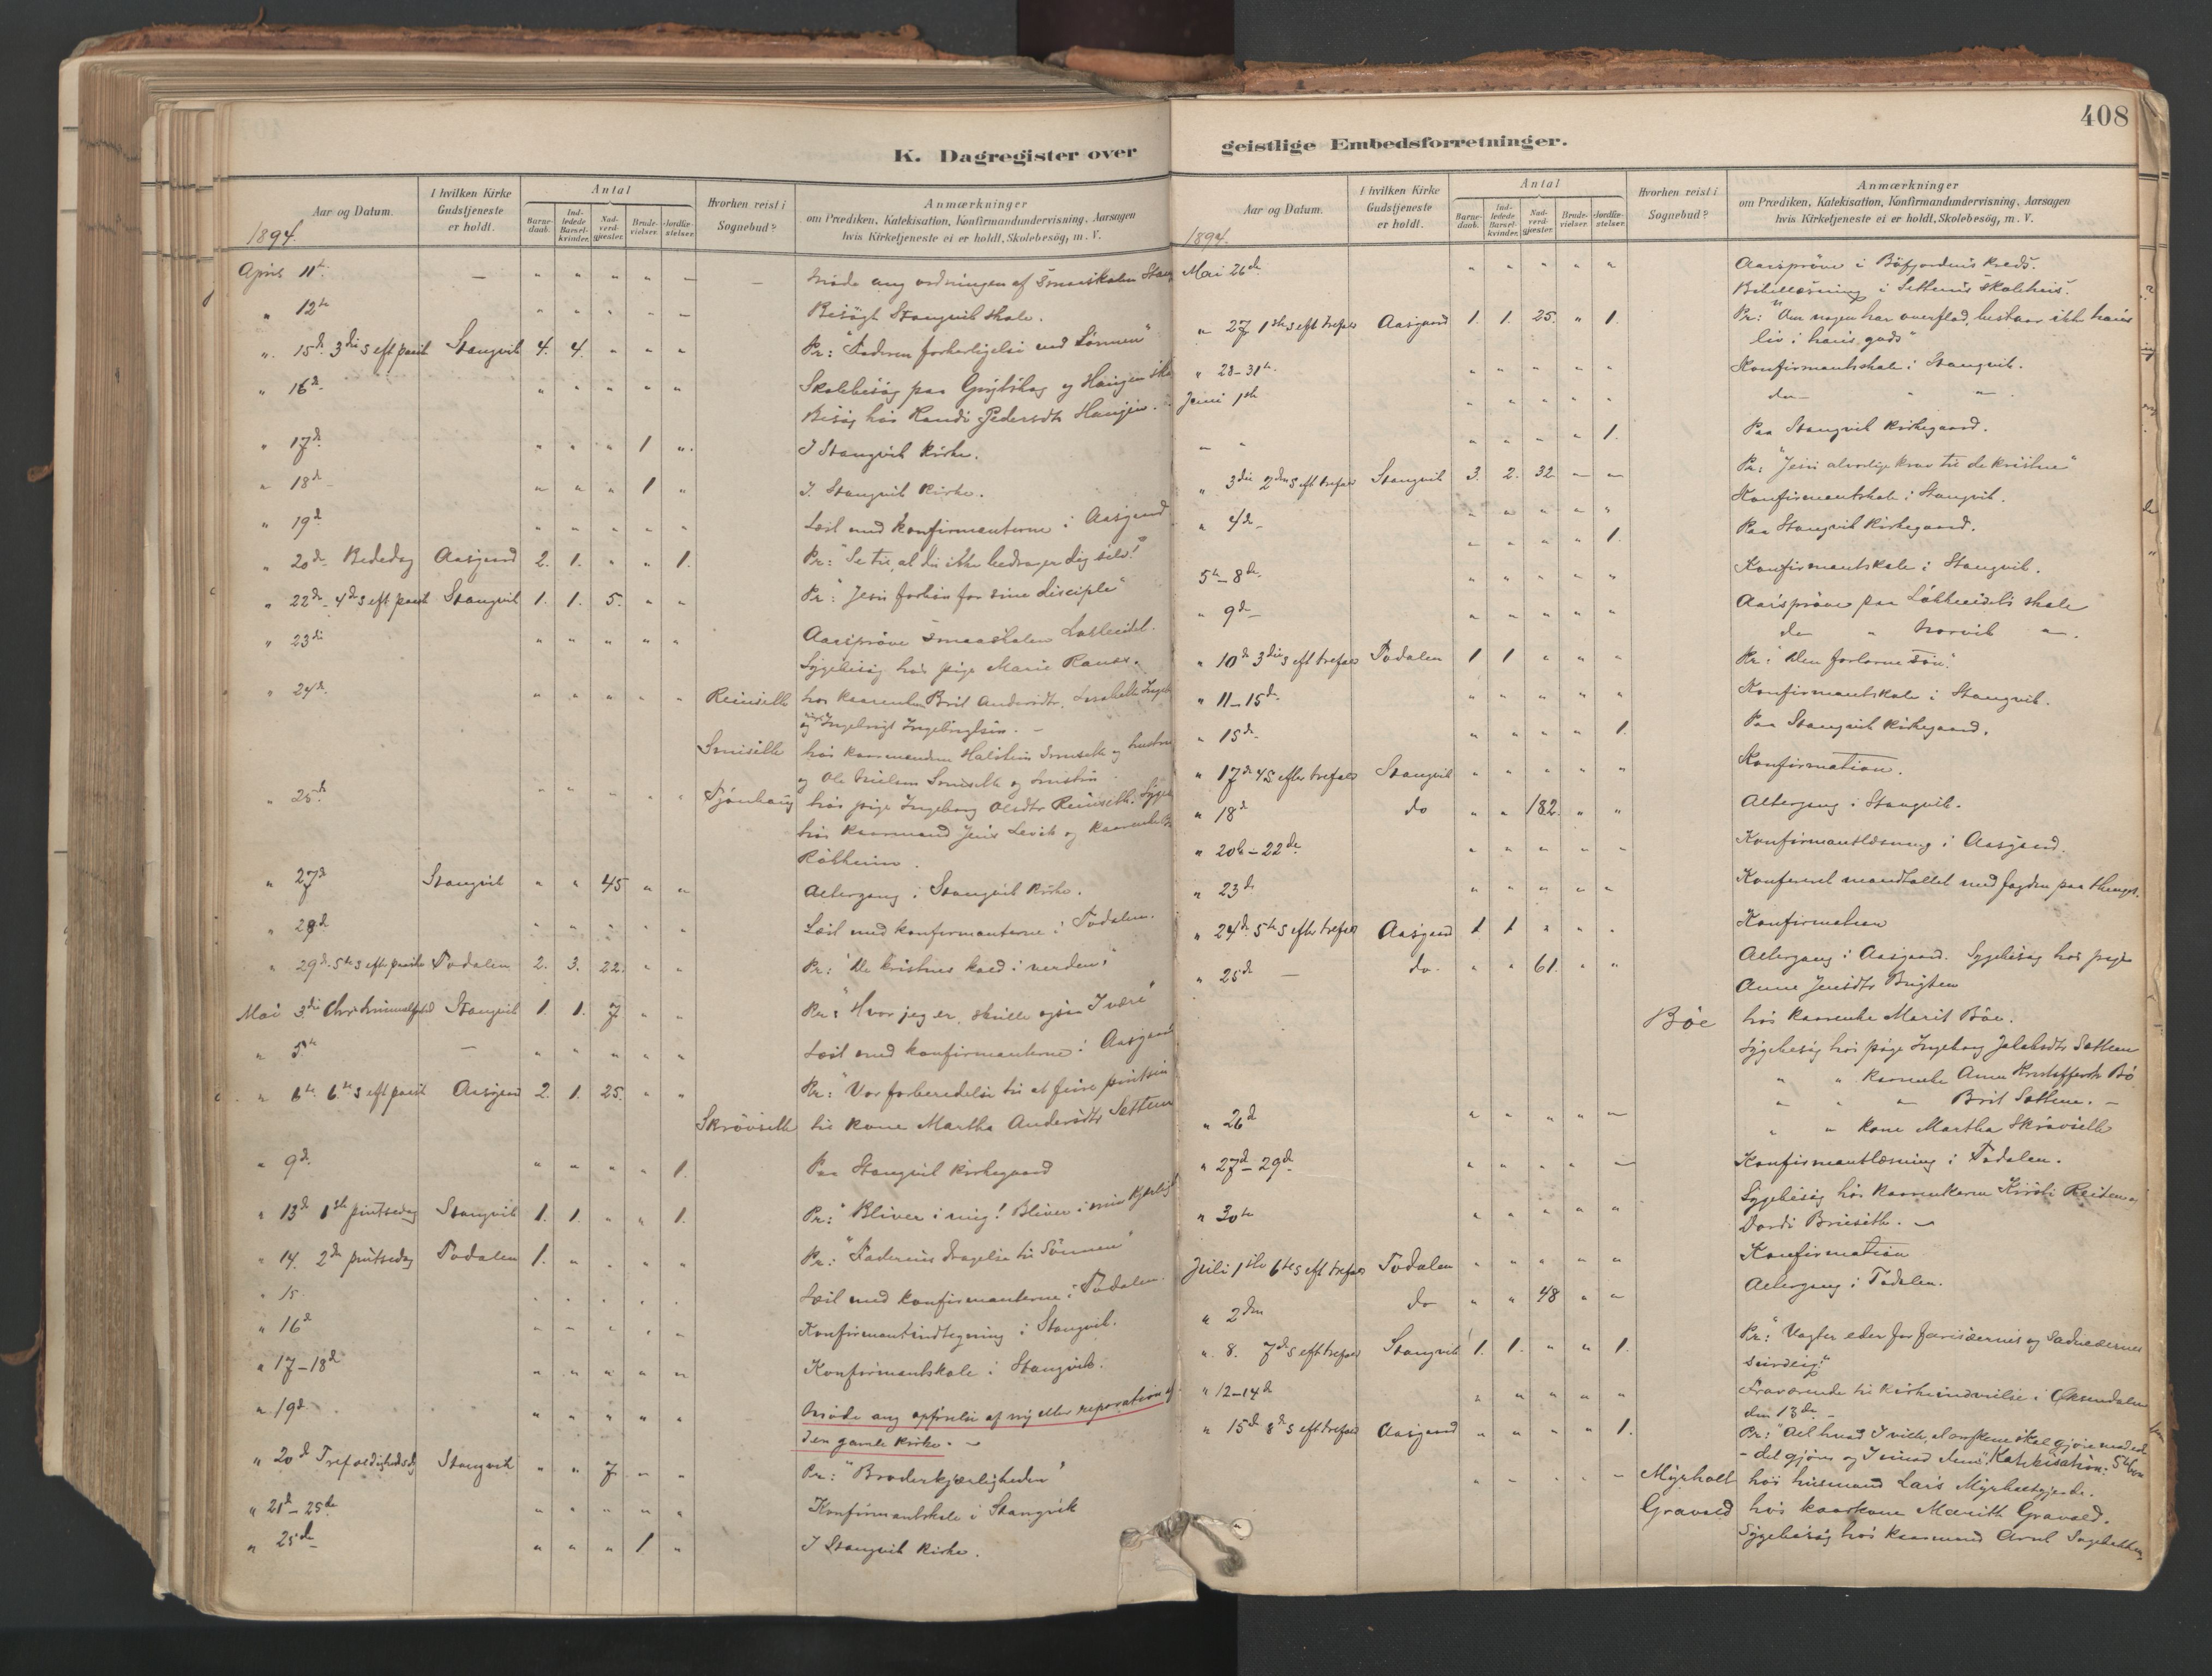 408
K. Dagregister over
Aar og Datum.
I hvilken Kirke Gudstjeneste er holdt.
Antal
Barnedaab.
Indledede Barselkvinder.
Nadverdgjæster.
Brudevielser.
Jordfæstelser.
Hvorhen reist i Sognebud?
Anmærkninger
om Prædiken, Katekisation, Konfirmandundervisning, Aarsagen
hvis Kirketjeneste ei er holdt, Skolebesög, m. V.
1894.
April 11te — " " " " — — Möde ang ordningen af smaaskolen
" 12te " " " " — Besögt Stangvik skole.
" 15de 3die s eft paask Stangvik 4. 4. " " " Pr: "Faderen forherligelse ved Sönnen"
" 16de " " " " " Skolebesög paa og Haugen
Besög hos Randi Pedersdtr Haugen.
" 17de " " " 1 " I Stangvik Kirke.
" 18de " " " 1 " I Stangvik Kirke.
" 19de " " " " " Læst med konfirmanterne i Aasgaard
" 20de Bededag Aasgaard 2. 1. " " 1. Pr: "Se til, at du ikke bedrager dig selv!"
" 22de 4de s eft paask Stangvik 1. 1. 5. " " Pr: "Jesu forbön for sine disciple"
" 23die " " " " " Aarspröve smaaskolen
Sygebesög hos pige Marie
" 24de " " " " " hos Brit Andersdtr.
og Ingebrigt Ingebrigtsen. —
hos Halstein og hustru
og Ole Nielsen og hustru
" 25de " " " " " hos pige Ingeborg Olsdtr
hos kaarmand Jens og
" 27de Stangvik " " 45 " " Altergang i Stangvik Kirke.
" 28de " " " " " Læst med konfirmanterne i Todalen.
" 29de 5te s eft paaske Todalen 2. 3. 22. " " Pr: "De kristnes kald i verden"
Mai 3die Chr. himmelfartsd Stangvik 1. 1. 7 " " Pr: "Hvor jeg er, skulle ogsaa I være"
" 5te — " " " " " Læst med konfirmanterne i Aasgaard
" 6te 6te s eft paask Aasgaard 2. 1. 25. " " Pr: "Vor forberedelse til at feire pintsen
Skrövseth til kone Martha Andersdtr Settem
" 9de " " " " 1. Paa Stangvik kirkegaard
" 13de 1ste pintsedag Stangvik 1. 1. " " 1. Pr: "Bliver i mig! Bliver i min kjærlighed
" 14. 2den pintsedag Todalen 1. " " " " Pr: "Faderens dragelse til Sönnen"
" 15 " " " " " Læst med konfirmanterne i Todalen.
" 16de " " " " " Konfirmantindtegning i Stangvik.
" 17–18de " " " " " Konfirmantskole i Stangvik.
" 19de " " " " " Möde ang opförelse af ny eller reparation af
den gamle kirke. —
" 20de Trefoldighedsdg Stangvik " " 7 " " Pr: "Broderkjærligheden"
" 21de–25de " " " " " Konfirmantskole i Stangvik
" 25de " " " 1. " I Stangvik Kirke.
geistlige Embedsforretninger.
Aar og Datum.
I hvilken Kirke Gudstjeneste er holdt.
Antal
Barnedaab.
Indledede Barselkvinder.
Nadverdgjæster.
Brudevielser.
Jordfæstelser.
Hvorhen reist i Sognebud?
Anmærkninger
om Prædiken, Katekisation, Konfirmandundervisning, Aarsagen
hvis Kirketjeneste ei er holdt, Skolebesög, m. V.
1894.
Mai 26de " " " " " Aarspröve i Böfjordens kreds.
Bibellæsning i Settems skolehus.
" 27 1ste s eft trefold Aasgaard 1. 1. 25. " 1. Pr: "Om nogen har overflod, bestaar ikke hans
liv i hans gods"
" 28–31te " " " " " Konfirmantskole i Stangvik.
Juni 1ste " " " " " do — " — .
— " " " " " 1. Paa Stangvik kirkegaard.
" 3die 2den s eft trefold Stangvik 3. 2. 32 — — Pr: "Jesu alvorlige krav til de kristne"
" 4de " " " " " Konfirmantskole i Stangvik.
" " " " 1. Paa Stangvik Kirkegaard.
5te–8de " " " " " Konfirmantskole i Stangvik.
" 9de " " " " " Aarspröve paa skole
do " Norvik — .
" 10de 3die s eft trefold Todalen 1 1 " " " Pr: "Den forlorne sön."
" 11–15de " " " " " Konfirmantskole i Stangvik.
" 15de " " " " 1. Paa Stangvik Kirkegaard.
" 17de 4 s efter trefold Stangvik " " " " " Konfirmation.
" 18de do " " 182. " " Altergang i Stangvik.
" 20de–22de " " " " " Konfirmantlæsning i Aasgaard.
" 23de " " " " " Konfereret mandtallet med fogden paa
" 24de 5te s efter trefold Aasgaard 1 1 " " " Konfirmation
" 25de — do. " " 61. " " Altergang i Aasgaard. Sygebesög hos pige
Anne Jensdtr
Böe hos Marit Böe.
Sygebesög hos pige Ingeborg Settem
" " Anne Bö
" " " Brit Settem. —
" 26de " " " " — " " kone Martha Skrövseth
" 27de–29de " " " " — Konfirmantlæsning i Todalen.
" 30te " " " " " Sygebesög hos Reiten og
Dordi —
Juli 1ste 6te s eft trefold Todalen " " " " " Konfirmation
" 2den do " " 48 " " Altergang i Todalen.
" 8. 7de s eft trefold Stangvik 1. 1. " " 1. Pr: "Vogter eder for farisæernes og saducæernes
surdeig"
" 12–14de " " " " " Fraværende til kirkeindvielse i Öksendalen
den 13de. —
" 15de 8de s eft trefold Aasgaard " " " " 1. Pr: "Alt hvad I ville, at menneskene skal gjöre mod eder
– det gjöre og I mod dem". Katekisation:
" " " " — Myrholt hos husmand Lars
Gravold hos kaarkone Marith Gravold.
Sygebesög hos kaarmand Arnt